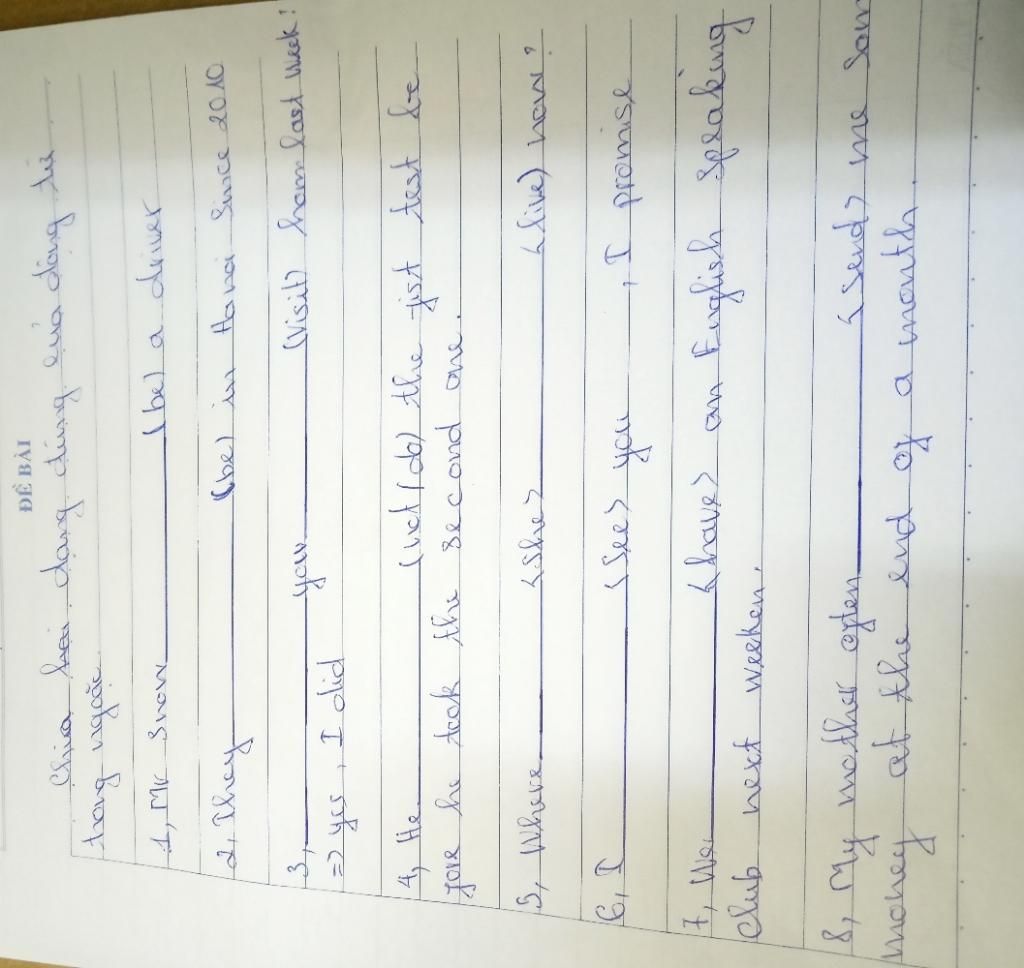 ĐỀ BÀI
Chia lại dạng đúng của động từ
trong ngoặc.
1, Mr Snow (be) a driver
2, They (be) in Hanoi since 2010
3, you (Visit) ham last week?
=> yes, I did
4, He (not (do) the fist test be
fore he took the second one.
5, Where <she> <live> now?
6, I <see> you, I promise
7, We <have> an English speaking
club next weeken.
8, My mother often <send> me som
money at the end of a month.